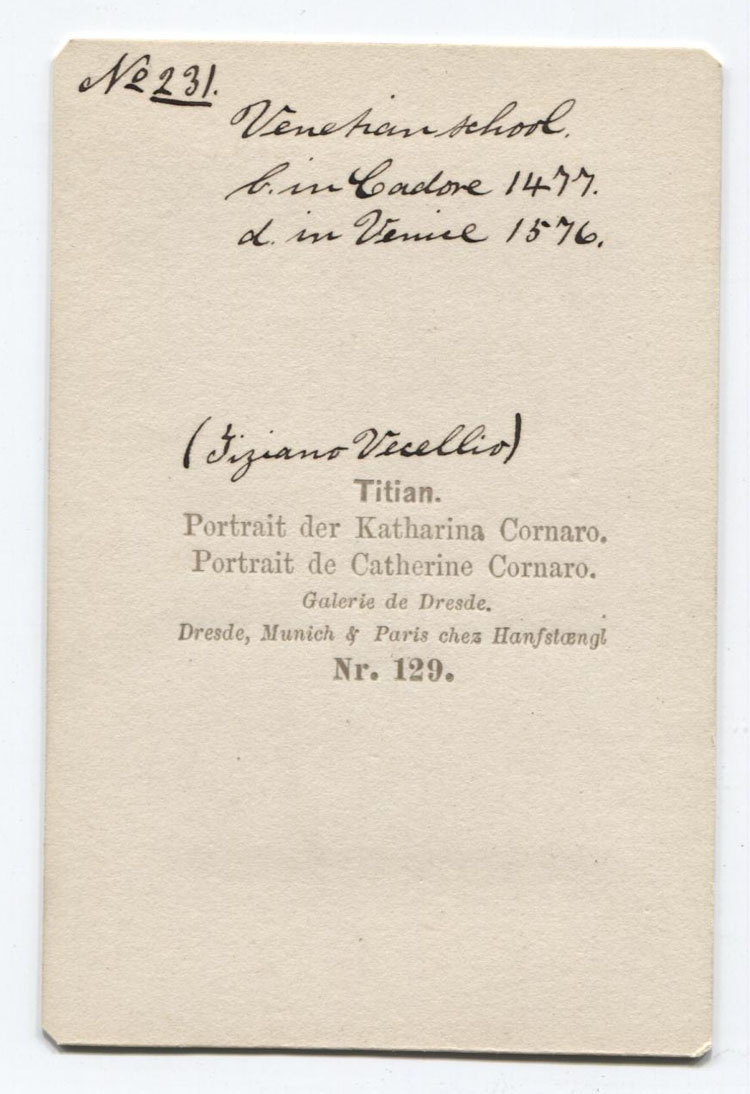 No 231.
Venetian school.
b. in Cadore 1477.
d. in Venice 1576.
(Tiziano Vecellio)
Titian.
Portrait der Katharina Cornaro.
Portrait de Catherine Cornaro.
Galerie de Dresde.
Dresde, Munich & Paris chez Hanfstængl
Nr. 129.